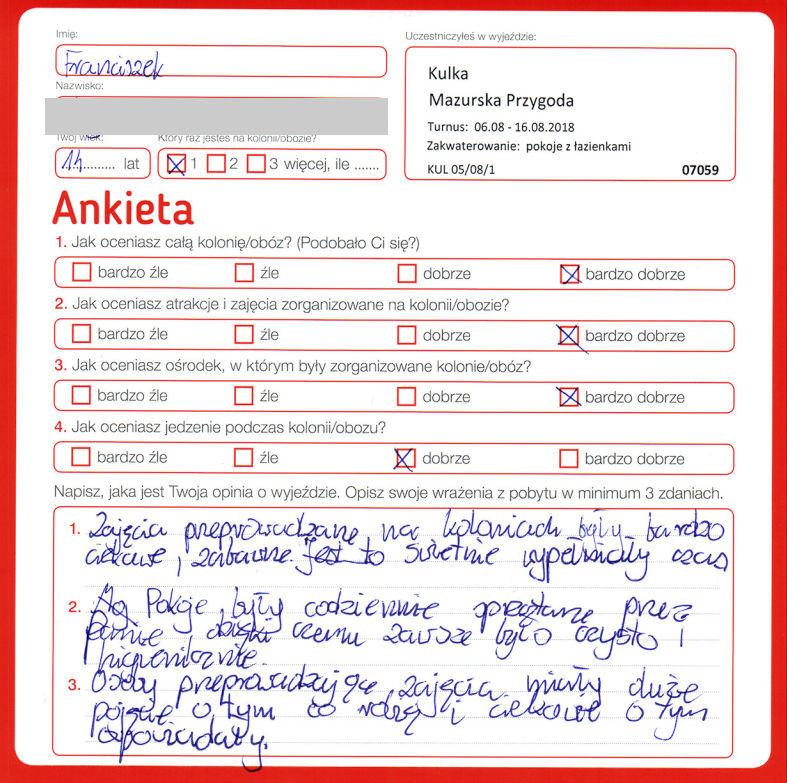 Imię:
Franciszek
Nazwisko:
Twój wiek:
14......... lat
Który raz jesteś na kolonii/obozie?
1 2 3 więcej, ile .......
Uczestniczyłeś w wyjeździe:
Kulka
Mazurska Przygoda
Turnus: 06.08 - 16.08.2018
Zakwaterowanie: pokoje z łazienkami
KUL 05/08/1 07059
Ankieta
1. Jak oceniasz całą kolonię/obóz? (Podobało Ci się?)
bardzo źle źle dobrze bardzo dobrze
2. Jak oceniasz atrakcje i zajęcia zorganizowane na kolonii/obozie?
bardzo źle źle dobrze bardzo dobrze
3. Jak oceniasz ośrodek, w którym były zorganizowane kolonie/obóz?
bardzo źle źle dobrze bardzo dobrze
4. Jak oceniasz jedzenie podczas kolonii/obozu?
bardzo źle źle dobrze bardzo dobrze
Napisz, jaka jest Twoja opinia o wyjeździe. Opisz swoje wrażenia z pobytu w minimum 3 zdaniach.
1. Zajęcia preprowadzane na koloniach były bardzo
ciekawe, zabawne. to świetnie wypełniały czas
2. Pokoje były codziennie sprzątane przez
panie, dzięki czemu zawsze było czysto i
higienicznie.
3. Osoby preprowadzające zajęcia miały duże
pojęcie o tym co robią i ciekawie o tym
opowiadały.